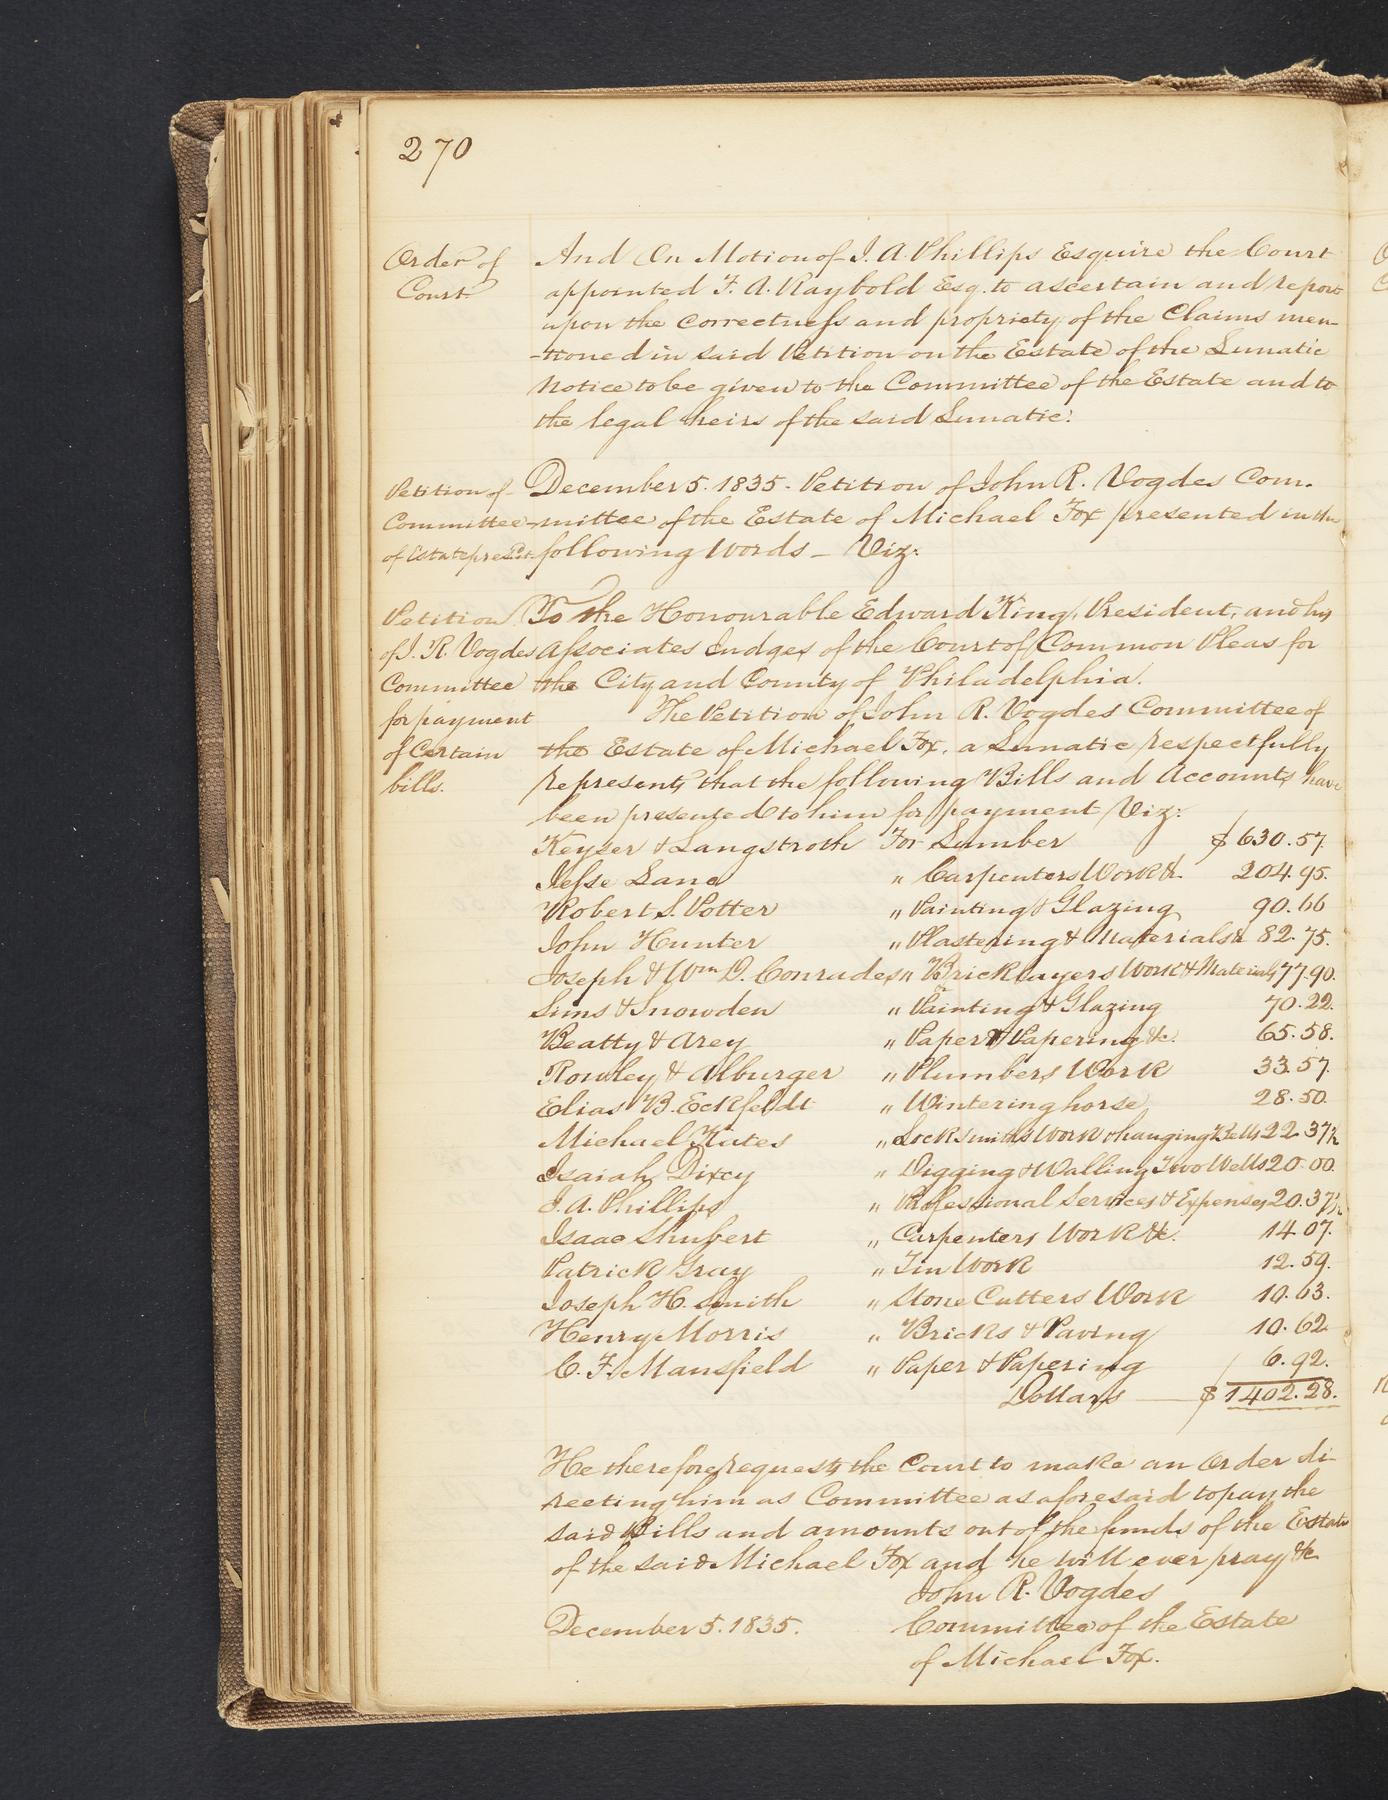 270
Order of
Court
And On Motion of J. A. Phillips Esquire the Court
appointed F. A. Raybold Esq. to ascertain and report
upon the correctness and propriety of the Claims men-
-tioned in said Petition on the Estate of the Lunatic
Notice to be given to the Committee of the Estate and to
the legal heirs of the said Lunatic.
Petition of
Committee
of Estate
December 5. 1835. Petition of John R. Vogdes Com.
-mittee of the Estate of Michael Fox presented in the
following Words — Viz:
Petition
of J. R. Vogdes
Committee
for payment
of Certain
bills.
To the Honourable Edward King, President, and his
Associates Judges of the Court of Common Pleas for
the City and County of Philadelphia.
The Petition of John R. Vogdes Committee of
the Estate of Michael Fox, a Lunatic respectfully
represents that the following Bills and Accounts have
been presented to him for payment Viz:
Keyser & Langstroth For Lumber $630.57.
Jesse Lane " Carpenters Work &c. 204.95.
Robert S. Potter " Painting & Glazing 90.66
John Hunter " Plastering & Materials &c 82.75.
Joseph & Wm D. Conrades " Bricklayers Work & Materials 77.90.
Sims & Snowden " Painting & Glazing 70.22.
Beatty & Arey " Paper & Papering &c. 65.58.
Rowley & Alburger " Plumbers Work 33.57.
Elias B. Eckfeldt " Wintering horse 28.50.
Michael Kates " Locksmiths Work & hanging Bells 22.37½
Isaiah Dixey " Digging & Walling Two Wells 20.00.
J. A. Phillips " Professional Services & Expenses 20.37½
Isaac Shubert " Carpenters Work &c. 14.07.
Patrick Gray " Tin Work 12.59.
Joseph H. Smith " Stone Cutters Work 10.63.
Henry Morris " Bricks & Paving 10.62
C. F. Mansfield " Paper & Papering 6.92.
Dollars — $1402.28.
He therefore requests the Court to make an Order di-
recting him as Committee as aforesaid to pay the
said Bills and amounts out of the funds of the Estate
of the said Michael Fox and he will ever pray &c
John R. Vogdes
December 5. 1835. Committee of the Estate
of Michael Fox.